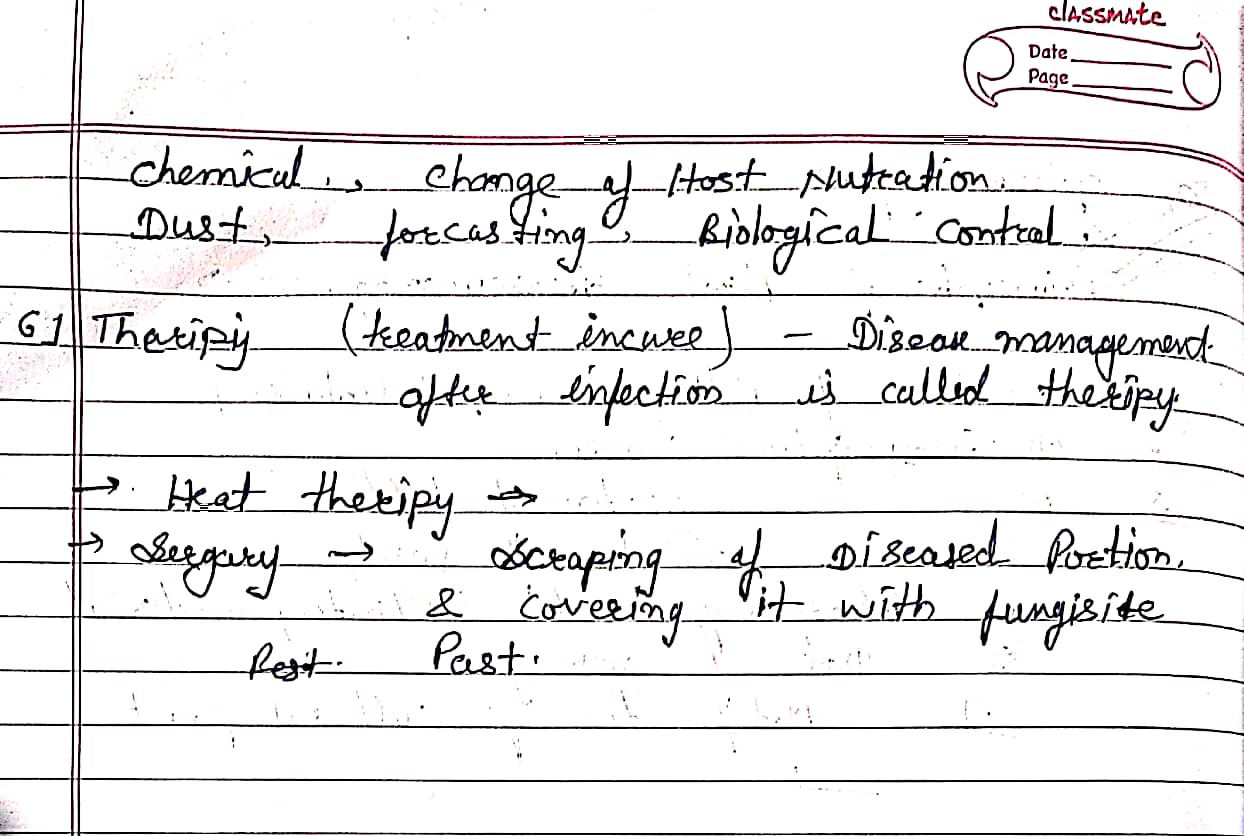 classmate
Date
Page
chemical, , change of Host Nutration.
Dust, forcasting, Biological control.
6] Theripy (treatment incuree) - Disease management
after infection is called theripy.
→ Heat theripy →
→ Sergury → Scraping of Diseased Portion.
& covering it with fungisite
Past.